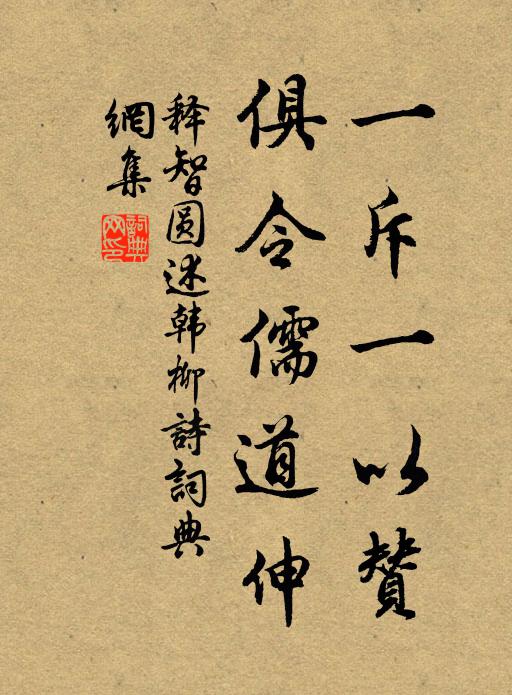 一斥一以贊
俱令儒道伸
释智圓述韩柳詩詞典
網集
詞典
网印